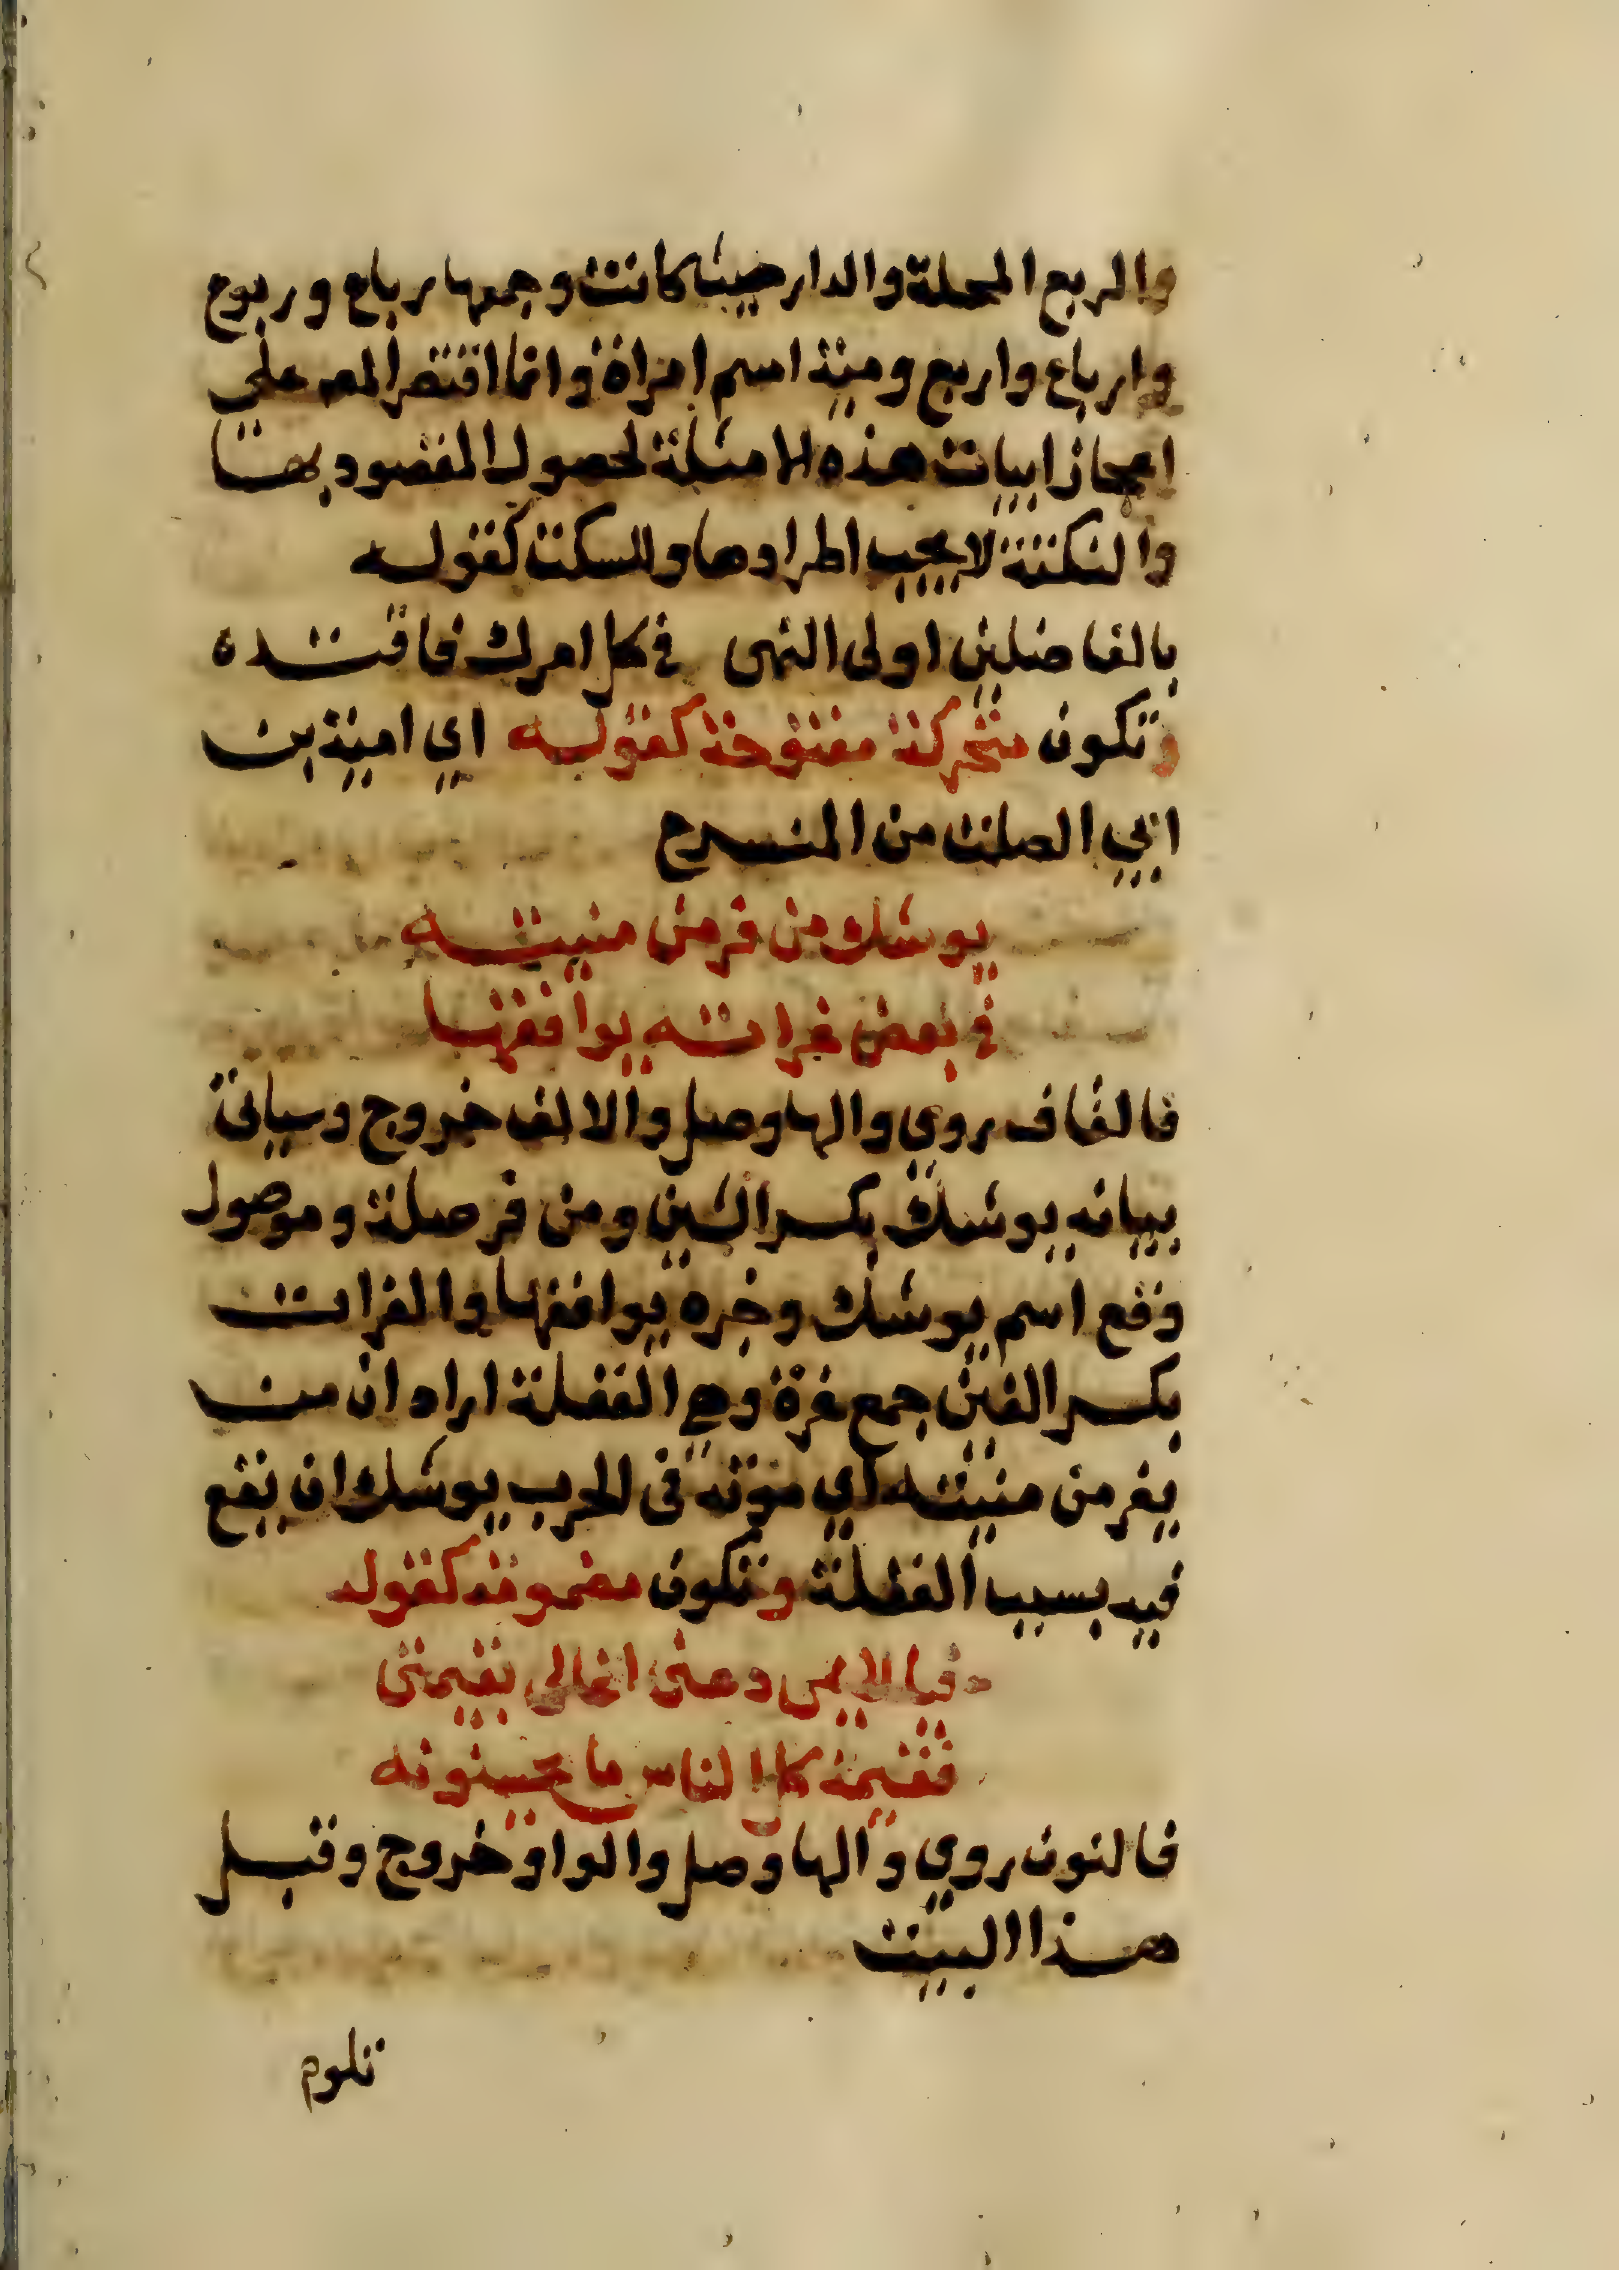 والربع المحلة والدار حيث كانت وجمعها رباع وربوع
وارباع واربع ومية اسم امراة وانما اقتصر المص على
اعجاز ابيات هذه الامثلة لحصول المقصود بها
والنكتة لا يجب اطرادها وللسكت كقوله
بالفاضلين اولى النهى في كل امرك فاقتده
وتكون متحركة مفتوحة كقوله اي امية بن
ابي الصلت من المنسرح
يوشك من فر من منيته
في بعض غراته يوافقها
فالقاف روي والها وصل والالف خروج وسياتي
بيانه يوشك بكسر الشين ومن فر صلة وموصول
وقع اسم يوشك وخبره يوافقها والغرات
بكسر الغين جمع غرة وهي الغفلة اراد ان من
يفر من منيته اي موته في الحرب يوشك ان يقع
فيه بسبب الغفلة وتكون مضمومة كقوله
فيا لايمي دعني اغالي بقيمتي
فقيمة كل الناس ما يحسنونه
فالنون روي والها وصل والواو خروج وقبل
هذا البيت
تلوم